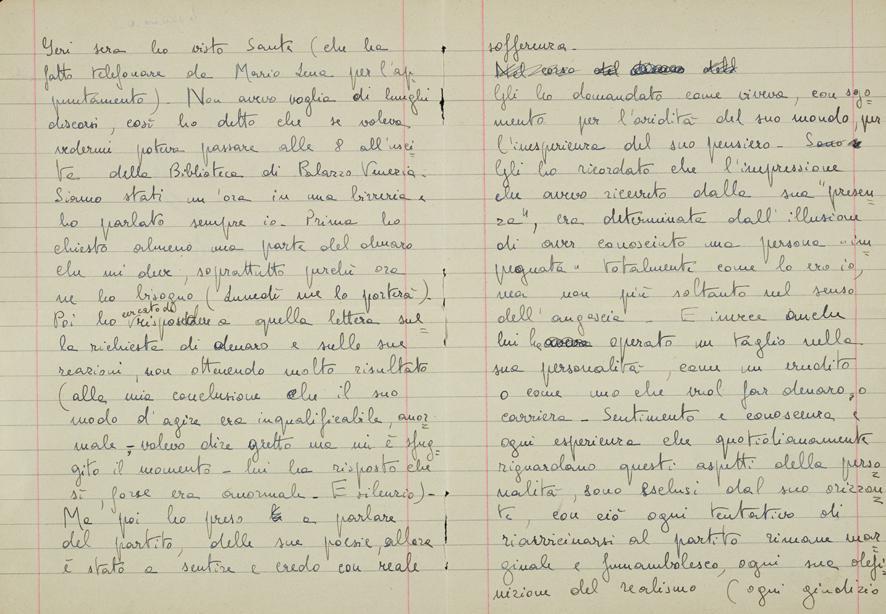 Ieri sera ho visto Santi (che ha
fatto telefonare da Mario Luna per l'ap-
puntamento). Non avevo voglia di lunghi
discorsi, così ho detto che se voleva
vedermi poteva passare alle 8 all'usci-
ta della Biblioteca di Palazzo Venezia.
Siamo stati un'ora in una birreria e
ho parlato sempre io. Prima ho
chiesto almeno una parte del denaro
che mi deve, soprattutto perché ora
ne ho bisogno (Lunedì me lo porterà).
Poi ho cercato di rispondere a quella lettera sul=
la richiesta di denaro e sulle sue
reazioni, non ottenendo molto risultato
(alla mia conclusione che il suo
modo d'agire era inqualificabile, anor=
male, - volevo dire gretto ma mi è sfug=
gito il momento - lui ha risposto che
sì, forse era anormale - E silenzio) -
Ma poi ho preso a parlare
del partito, delle sue poesie, allora
è stato a sentire e credo con reale
sofferenza -
Nel corso del
Gli ho domandato come viveva, con sgo=
mento per l'aridità del suo mondo, per
l'inesperienza del suo pensiero -
Gli ho ricordato che l'impressione
che avevo ricevuto dalla sua "presen=
za", era determinata dall'illusione
di aver conosciuto una persona "im
pegnata" totalmente come lo ero io,
ma non più soltanto nel senso
dell'angoscia - E invece anche
lui ha operato un taglio nella
sua personalità, come un erudito
o come uno che vuol far denaro, o
carriera - Sentimento e conoscenza e
ogni esperienza che quotidianamente
riguardano questi aspetti della perso
nalità, sono esclusi dal suo orizzon
te, con ciò ogni tentativo di
riavvicinarsi al partito rimane mar
ginale e funambolesco, ogni sua defi=
nizione del realismo (ogni giudizio